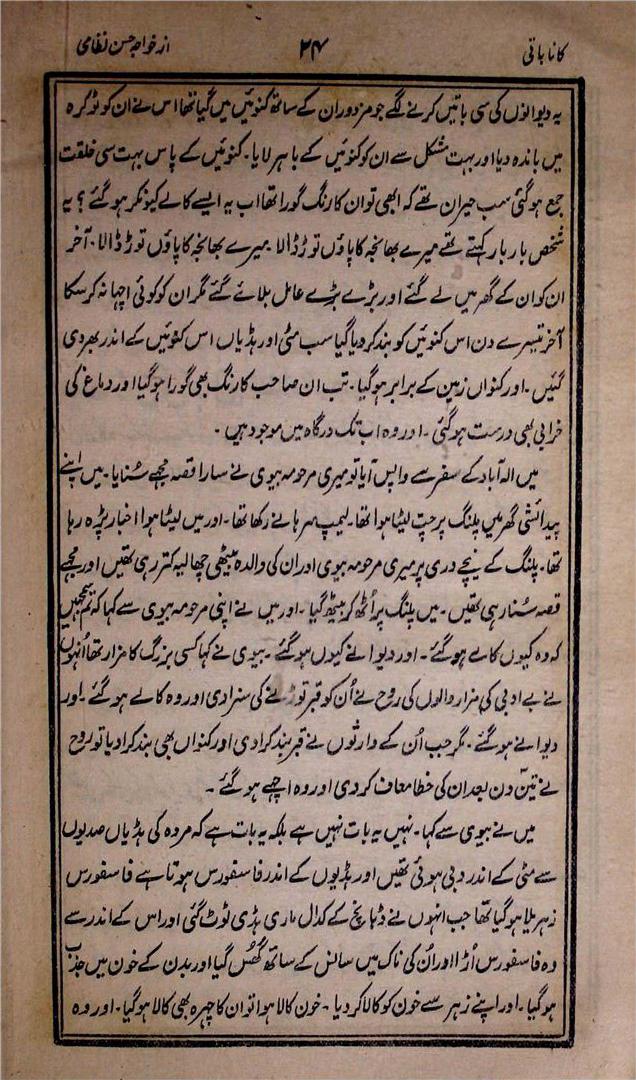 کانا باتی ۲۴ از خواجہ حسن نظامی
یہ دیوانوں کی سی باتیں کرنے لگے جو مزدور ان کے ساتھ کنوئیں میں گیا تھا اس نے ان کو ٹوکرہ
میں باندہ دیا اور بہت مشکل سے ان کو کنوئیں کے باہر لایا۔ کنوئیں کے پاس بہت سی خلقت
جمع ہو گئی سب حیران تھے کہ ابھی تو ان کا رنگ گورا تھا اب یہ ایسے کالے کیونکر ہو گئے؟ یہ
شخص بار بار کہتے تھے میرے بھانجہ کا پاؤں توڑ ڈالا۔ میرے بھانجہ کا پاؤں توڑ ڈالا۔ آخر
ان کو ان کے گھر میں لے گئے اور بڑے بڑے عامل بلائے گئے مگر ان کو کوئی اچھا نہ کر سکا
آخر تیسرے دن اس کنوئیں کو بند کر دیا گیا سب مٹی اور ہڈیاں اس کنوئیں کے اندر بھر دی
گئیں۔ اور کنواں زمین کے برابر ہو گیا۔ تب ان صاحب کا رنگ بھی گورا ہو گیا اور دماغ کی
خرابی بھی درست ہو گئی۔ اور وہ اب تک درگاہ میں موجود ہیں۔
میں الہ آباد کے سفر سے واپس آیا تو میری مرحومہ بیوی نے سارا قصہ مجھے سُنایا۔ میں اپنے
پیدائشی گھر میں پلنگ پر چت لیٹا ہوا تھا۔ لیمپ سرہانے رکھا تھا۔ اور میں لیٹا ہوا اخبار پڑہ رہا
تھا۔ پلنگ کے نیچے دری پر میری مرحومہ بیوی اور ان کی والدہ بیٹھی چھالیہ کتر رہی تھیں اور مجھے
قصہ سُنا رہی تھیں۔ میں پلنگ پر اُٹھ کر بیٹھ گیا۔ اور میں نے اپنی مرحومہ بیوی سے کہا کہ تم سمجھیں
کہ وہ کیوں کالے ہو گئے۔ اور دیوانے کیوں ہو گئے۔ بیوی نے کہا کسی بزرگ کا مزار تھا اُنہوں
نے بے ادبی کی مزار والوں کی روح نے اُن کو قبر توڑنے کی سزا دی اور وہ کالے ہو گئے۔ اور
دیوانے ہو گئے۔ مگر جب اُن کے وارثوں نے قبر بند کرا دی اور کنواں بھی بند کرا دیا تو روح
نے تین دن بعد ان کی خطا معاف کر دی اور وہ اچھے ہو گئے۔
میں نے بیوی سے کہا۔ نہیں یہ بات نہیں ہے بلکہ یہ بات ہے کہ مردہ کی ہڈیاں صدیوں
سے مٹی کے اندر دبی ہوئی تھیں اور ہڈیوں کے اندر فاسفورس ہوتا ہے فاسفورس
زہریلا ہو گیا تھا جب انہوں نے ڈہانچ کے کدال ماری ہڈی ٹوٹ گئی اور اس کے اندر سے
وہ فاسفورس اُڑا اور اُن کی ناک میں سانس کے ساتھ گھُس گیا اور بدن کے خون میں جذب
ہو گیا۔ اور اپنے زہر سے خون کو کالا کر دیا۔ خون کالا ہوا تو ان کا چہرہ بھی کالا ہو گیا۔ اور وہ